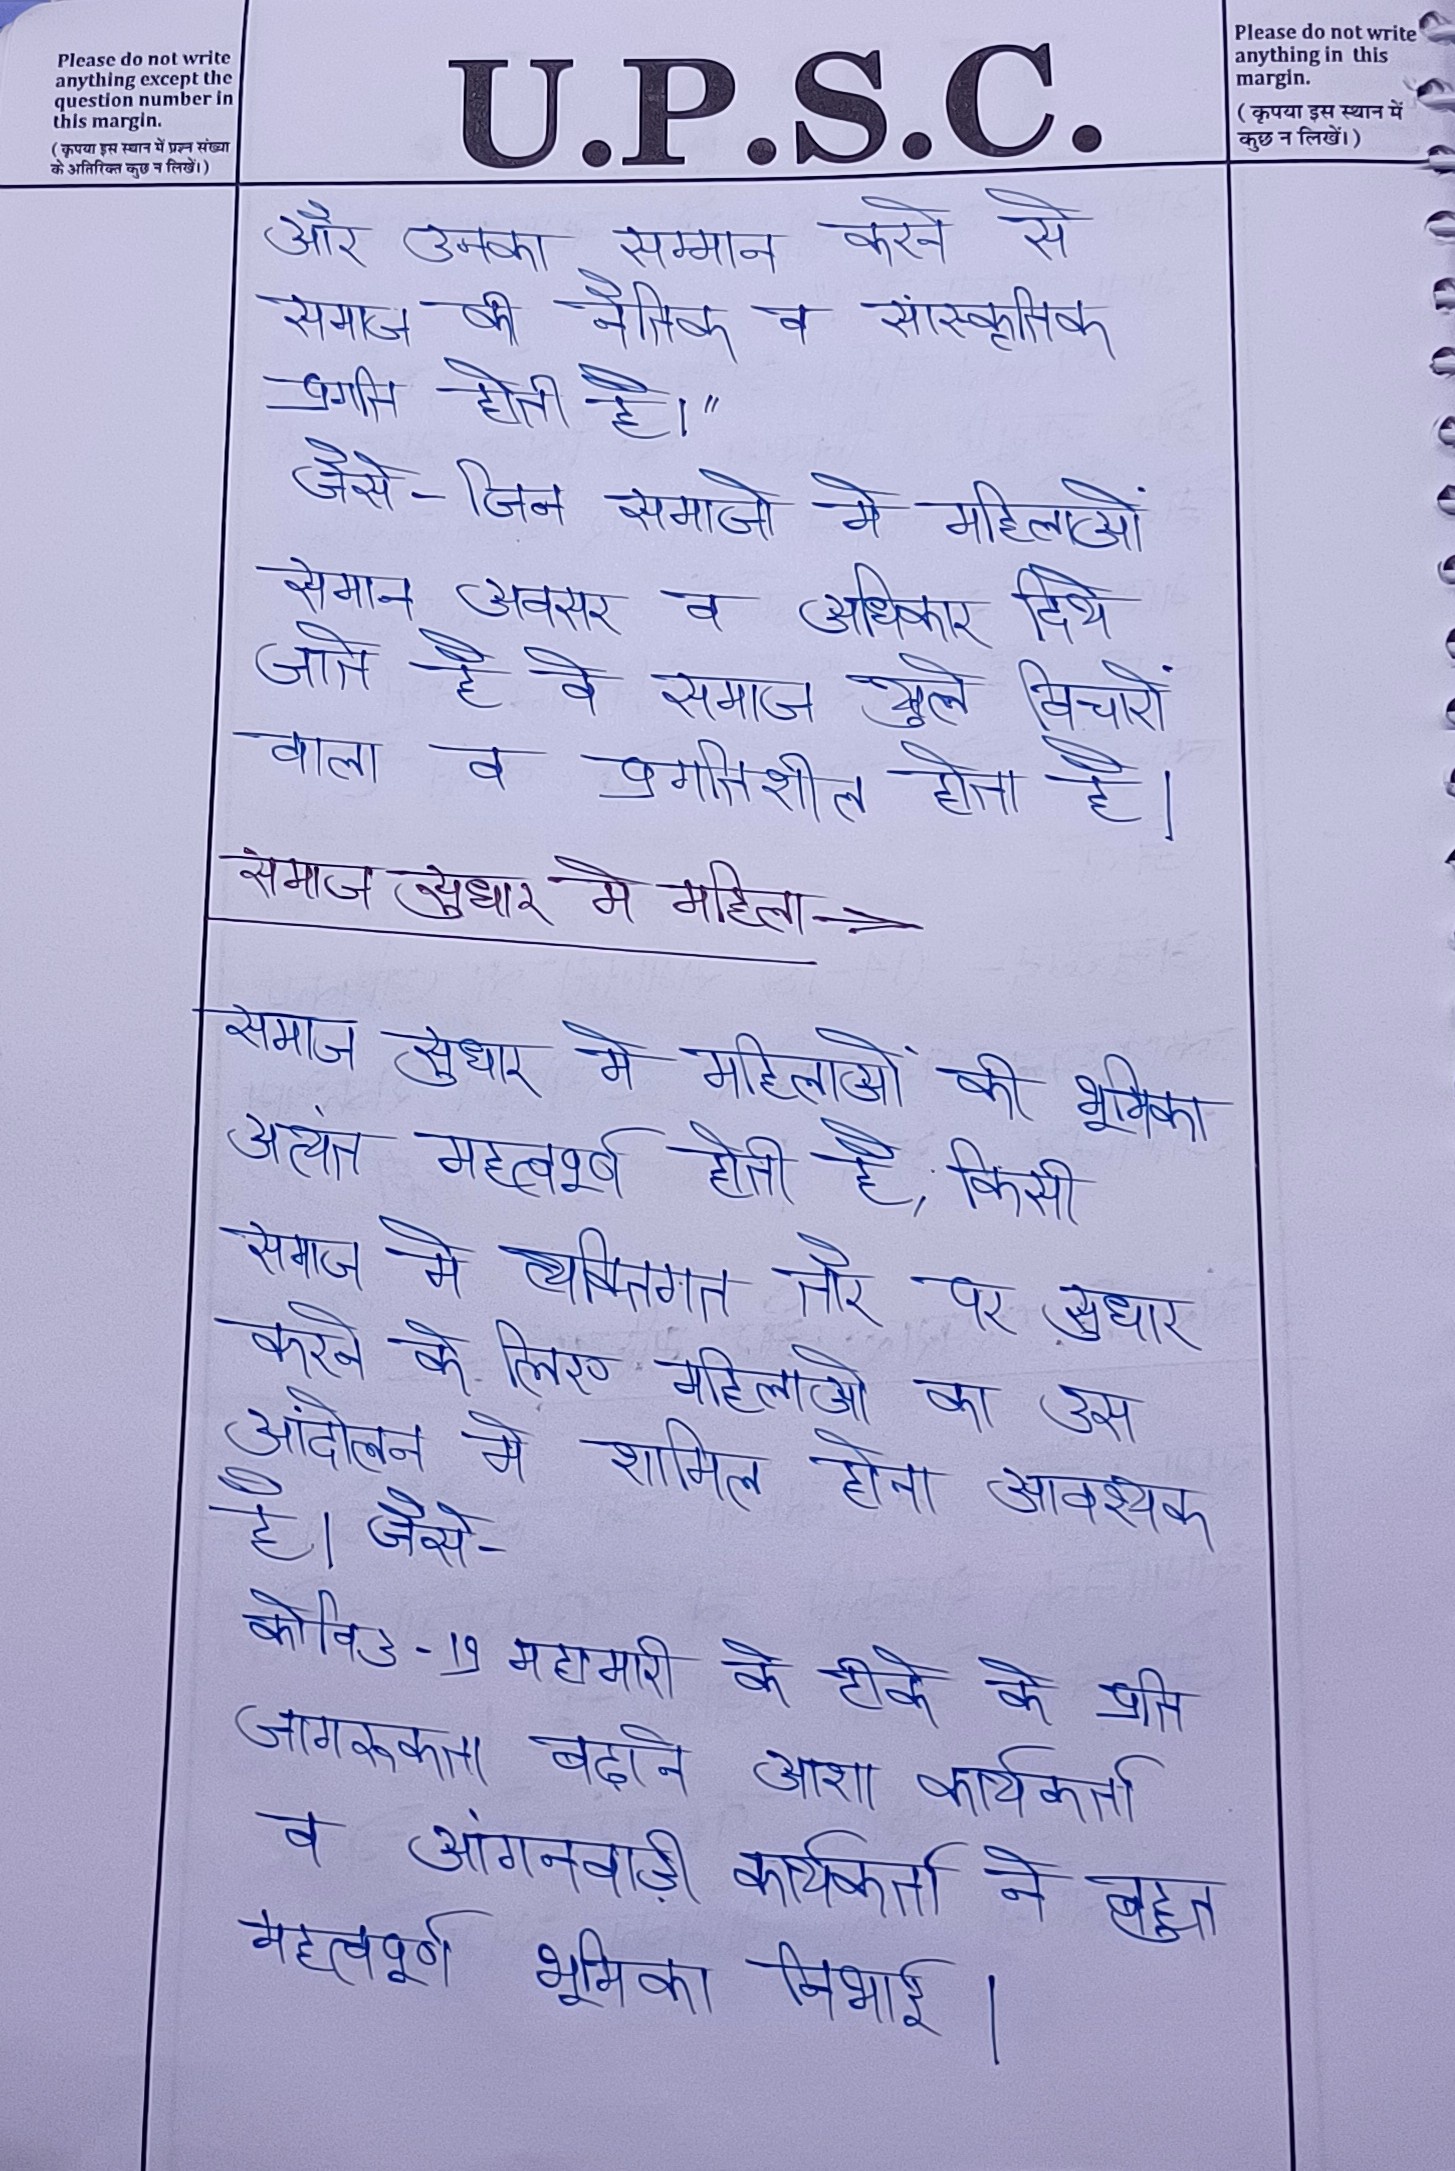 Please do not write
anything except the
question number in
this margin.
(कृपया इस स्थान में प्रश्न संख्या
के अतिरिक्त कुछ न लिखें।)
U.P.S.C.
Please do not write
anything in this
margin.
(कृपया इस स्थान में
कुछ न लिखें।)
और उनका सम्मान करने से
समाज की नैतिक व सांस्कृतिक
प्रगति होती है।"
जैसे- जिन समाजो मे महिलाओं
समान अवसर व अधिकार दिये
जाते है वे समाज खुले विचारों
वाला व प्रगतिशील होता है।
समाज सुधार मे महिला→
समाज सुधार मे महिलाओं की भूमिका
अत्यंत महत्वपूर्ण होती है, किसी
समाज मे व्यक्तिगत तौर पर सुधार
करने के लिए महिलाओ का उस
आंदोलन मे शामिल होना आवश्यक
है। जैसे-
कोविड-19 महामारी के टीके के प्रति
जागरूकता बढ़ाने आशा कार्यकर्ता
व आंगनवाड़ी कार्यकर्ता ने बहुत
महत्वपूर्ण भूमिका निभाई।